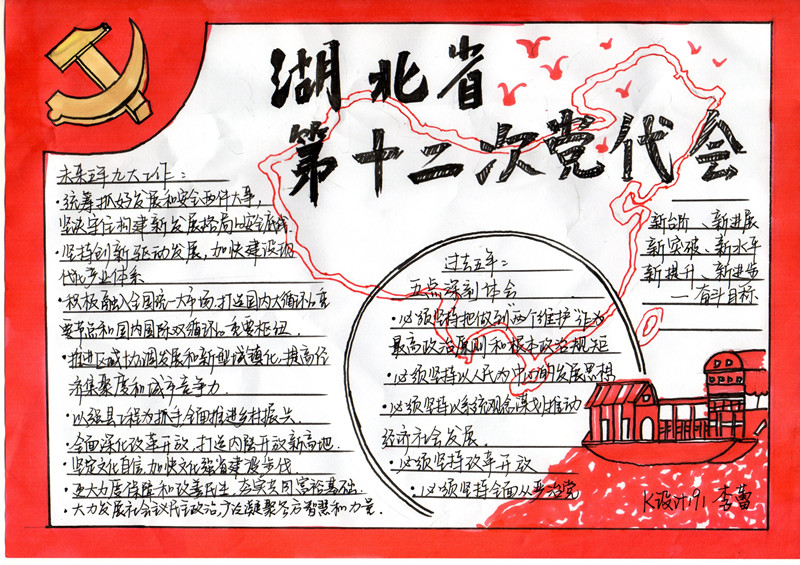 湖北省
第十二次党代会
未来五年九大工作：
·统筹抓好发展和安全两件大事，
坚决守住构建新发展格局安全底线.
·坚持创新驱动发展，加快建设现
代化产业体系
·积极融入全国统一大市场，打造国内大循环重
要节点和国内国际双循环重要枢纽.
·推进区域协调发展和新型城镇化，提高经
济集聚度和城市竞争力.
·以强县工程为抓手，全面推进乡村振兴.
·全面深化改革开放，打造内陆开放新高地.
·坚定文化自信，加快文化强省建设步伐.
·更大力度保障和改善民生，夯实共同富裕基础.
·大力发展社会主义民主政治，广泛凝聚各方智慧和力量.
过去五年：
五点深刻体会
·必须坚持把做到“两个维护”作为
最高政治原则和根本政治规矩
·必须坚持以人民为中心的发展思想
·必须坚持以系统观念谋划推动
经济社会发展.
·必须坚持改革开放
·必须坚持全面从严治党
新台阶、新进展
新突破、新水平
新提升、新进步
—奋斗目标
K设计191 李蕾